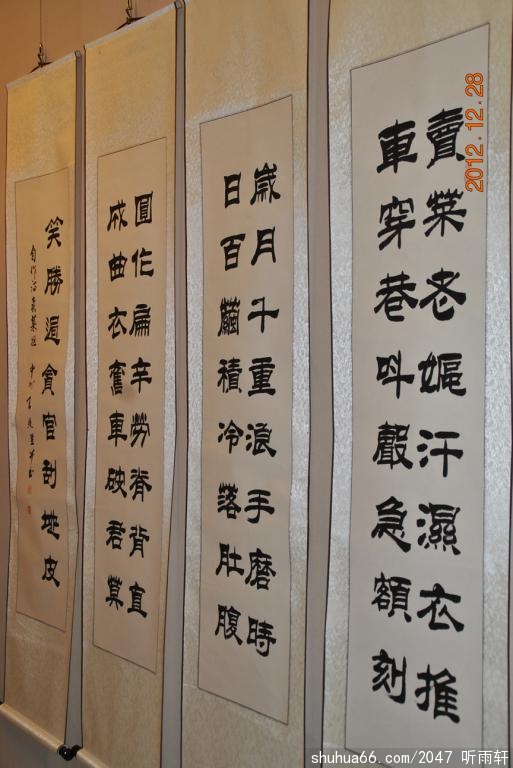 賣菜老嫗汗濕衣推
車穿巷叫聲急額刻
歲月千重浪手磨時
日百繭積冷落肚腹
圓作扁辛勞脊背直
成曲衣舊車映君莫
笑勝過貪官刮地皮
自作詩賣菜嫗
2012.12.28
shuhua66.com/2047 听雨轩